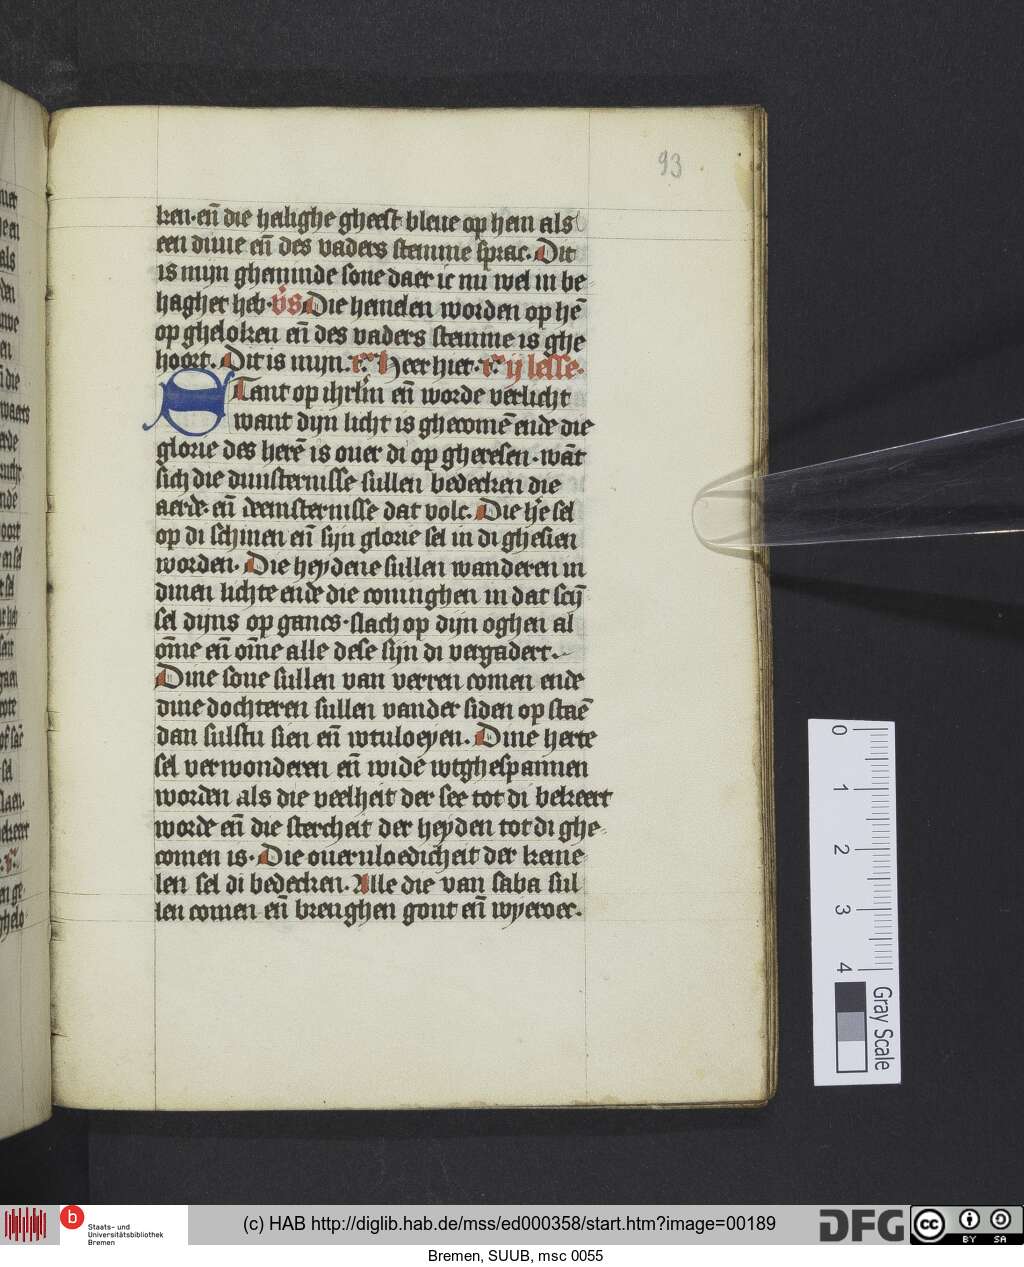 93
ken· eñ die heilighe gheest bleue op hem als
een duue eñ des vaders stemme sprac. Dit
is mijn gheminde sone daer ic mi wel in be-
hagher heb· v̕s Die hemelen worden op hē
op gheloken eñ des vaders stemme is ghe
hoort. Dit is mijn. r̕. Heer hier. r̕. ij lesse.
Stant op ihrlm̄ eñ worde verlicht
want dijn licht is ghecomē ende die
glorie des herē is ouer di op gheresen· wāt
sich die duusternisse sullen bedecken die
aerde· eñ deemsternisse dat volc. Die h̕e sel
op di schinen eñ sijn glorie sel in di ghesien
worden. Die heydene sullen wanderen in
dinen lichte ende die coninghen in dat scij̄
sel dijns op gancs· slach op dijn oghen al
om̄e eñ om̄e alle dese sijn di vergadert.
Dine sone sullen van verren comen ende
dine dochteren sullen vander siden op staē
dan sulstu sien eñ wtuloeyen. Dine herte
sel verwonderen eñ wide wtghespannen
worden als die veelheit der see tot di bekeert
worde eñ die stercheit der heyden tot di ghe-
comen is. Die ouervloedicheit der keme-
len sel di bedecken. Alle die van saba sul
len comen eñ brenghen gout eñ wyeroec.
0
1
2
3
4
Gray Scale
b
Staats- und
Universitätsbibliothek
Bremen
(c) HAB http://diglib.hab.de/mss/ed000358/start.htm?image=00189
DFG
cc
BY SA
Bremen, SUUB, msc 0055